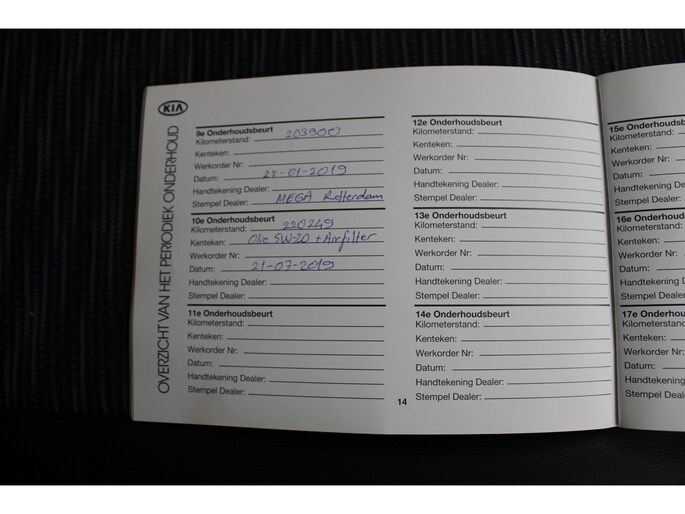 KIA
OVERZICHT VAN HET PERIODIEK ONDERHOUD
9e Onderhoudsbeurt
Kilometerstand: 203900
Kenteken:
Werkorder Nr:
Datum: 28-01-2019
Handtekening Dealer:
Stempel Dealer: MEGA Rotterdam
10e Onderhoudsbeurt
Kilometerstand: 220249
Kenteken: Olie 5W-20 + Airfilter
Werkorder Nr:
Datum: 21-07-2019
Handtekening Dealer:
Stempel Dealer:
11e Onderhoudsbeurt
Kilometerstand:
Kenteken:
Werkorder Nr:
Datum:
Handtekening Dealer:
Stempel Dealer:
14
12e Onderhoudsbeurt
Kilometerstand:
Kenteken:
Werkorder Nr:
Datum:
Handtekening Dealer:
Stempel Dealer:
13e Onderhoudsbeurt
Kilometerstand:
Kenteken:
Werkorder Nr:
Datum:
Handtekening Dealer:
Stempel Dealer:
14e Onderhoudsbeurt
Kilometerstand:
Kenteken:
Werkorder Nr:
Datum:
Handtekening Dealer:
Stempel Dealer:
15e Onderhoudsb
Kilometerstand:
Kenteken:
Werkorder Nr:
Datum:
Handtekening D
Stempel Dealer:
16e Onderhouds
Kilometerstand:
Kenteken:
Werkorder Nr:
Datum:
Handtekening D
Stempel Dealer:
17e Onderhoud
Kilometerstand
Kenteken:
Werkorder Nr:
Datum:
Handtekening
Stempel Dealer